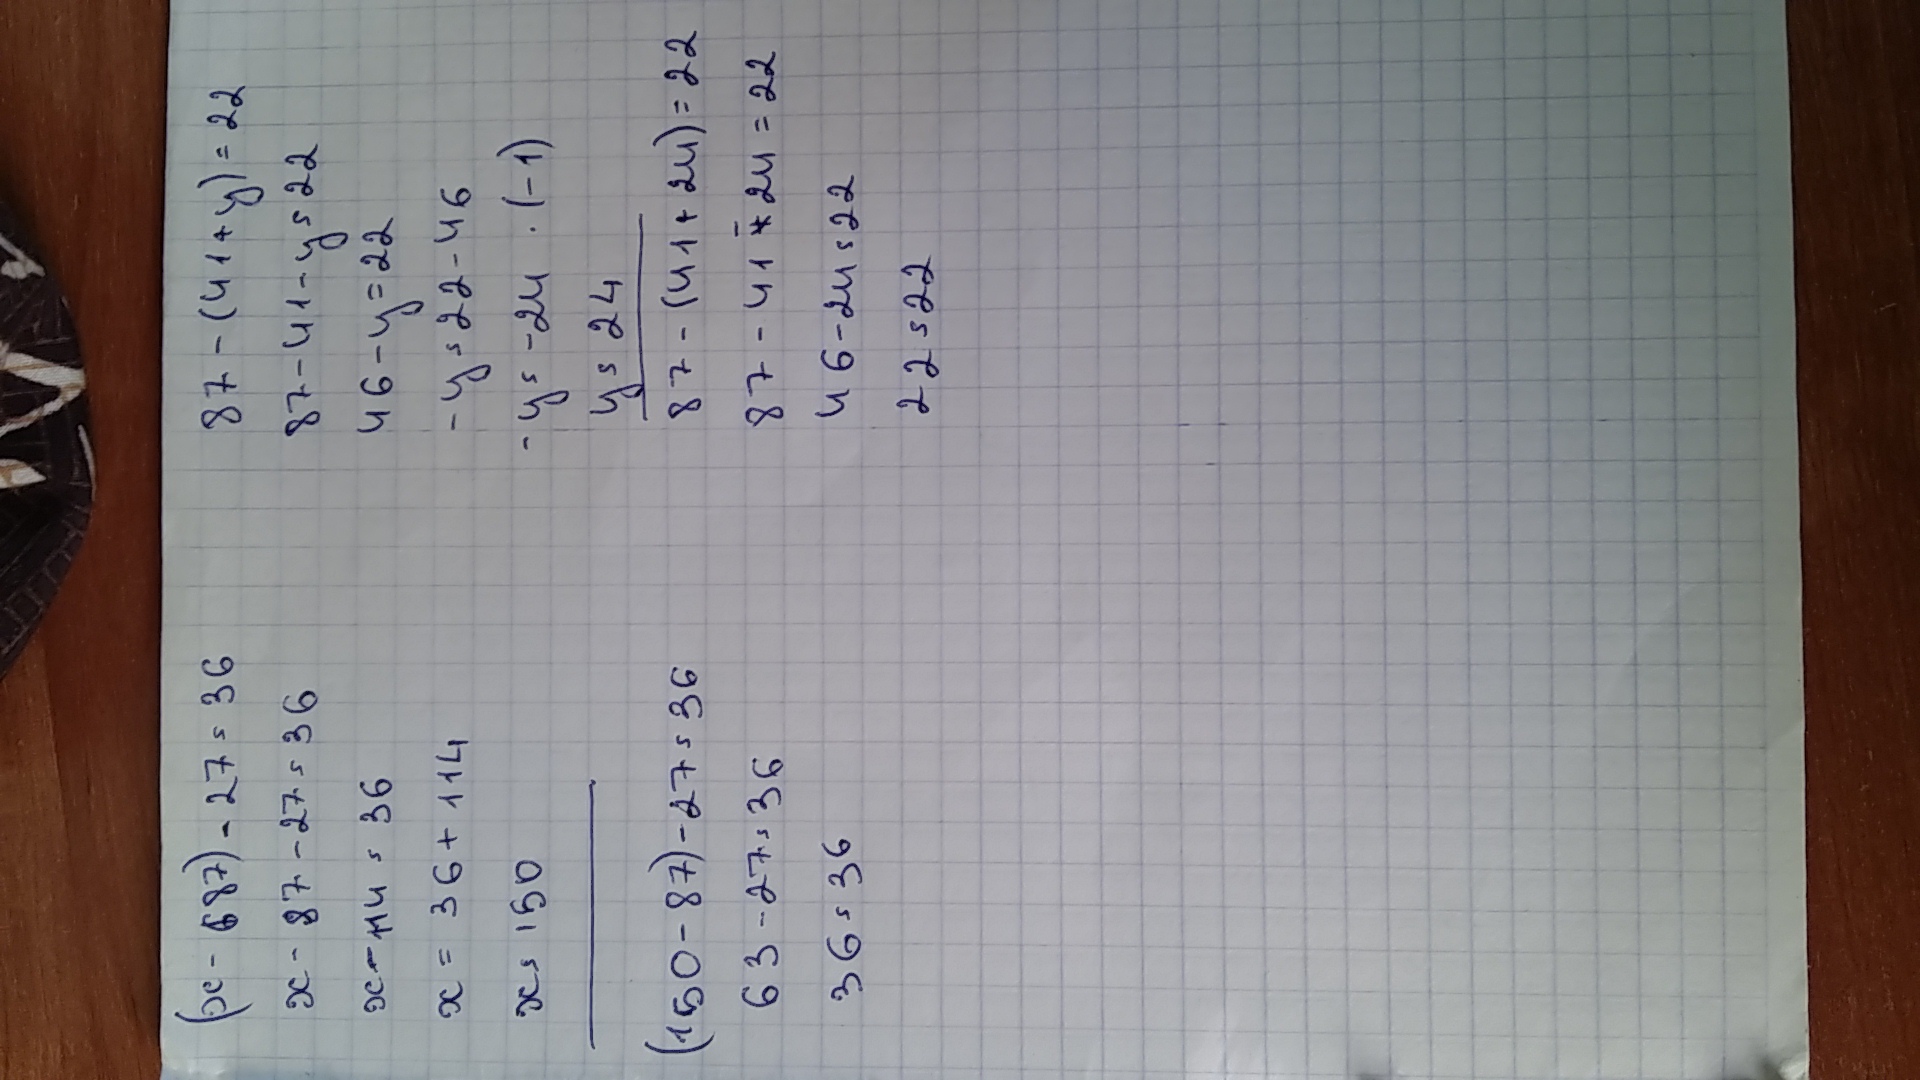 (x - 87) - 27 = 36
x - 87 - 27 = 36
x - 114 = 36
x = 36 + 114
x = 150
(150 - 87) - 27 = 36
63 - 27 = 36
36 = 36
87 - (41 + y) = 22
87 - 41 - y = 22
46 - y = 22
- y = 22 - 46
- y = -24 · (-1)
y = 24
87 - (41 + 24) = 22
87 - 41 - 24 = 22
46 - 24 = 22
22 = 22